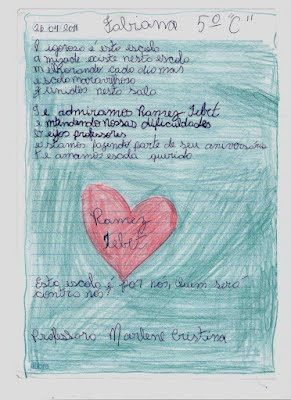 26 09 2011 Fabiana 5º "C"
Rigoroso é esta escola
amizade existe nesta escola
melhorando cada dia mas
escola maravilhosa
unidos nesta sala
Te admiramos Ramez Tebet
entendendo nossas dificuldades
professores
estamos fazendo parte de seu aniversário
Te amamos escola querida
Ramez
Tebet
Esta escola é por nos, quem será
contra nós?
Professora Marlene Cristina